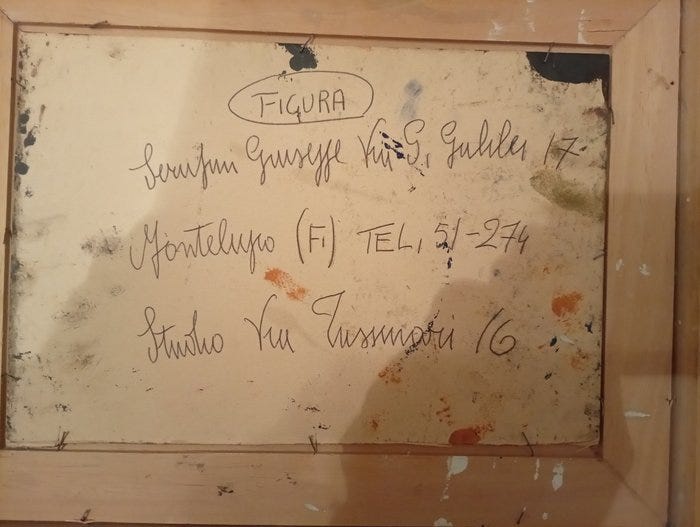 FIGURA
Serafini Giuseppe Via G. Galilei 17
Montelupo (FI) TEL. 51-274
Studio Via 16